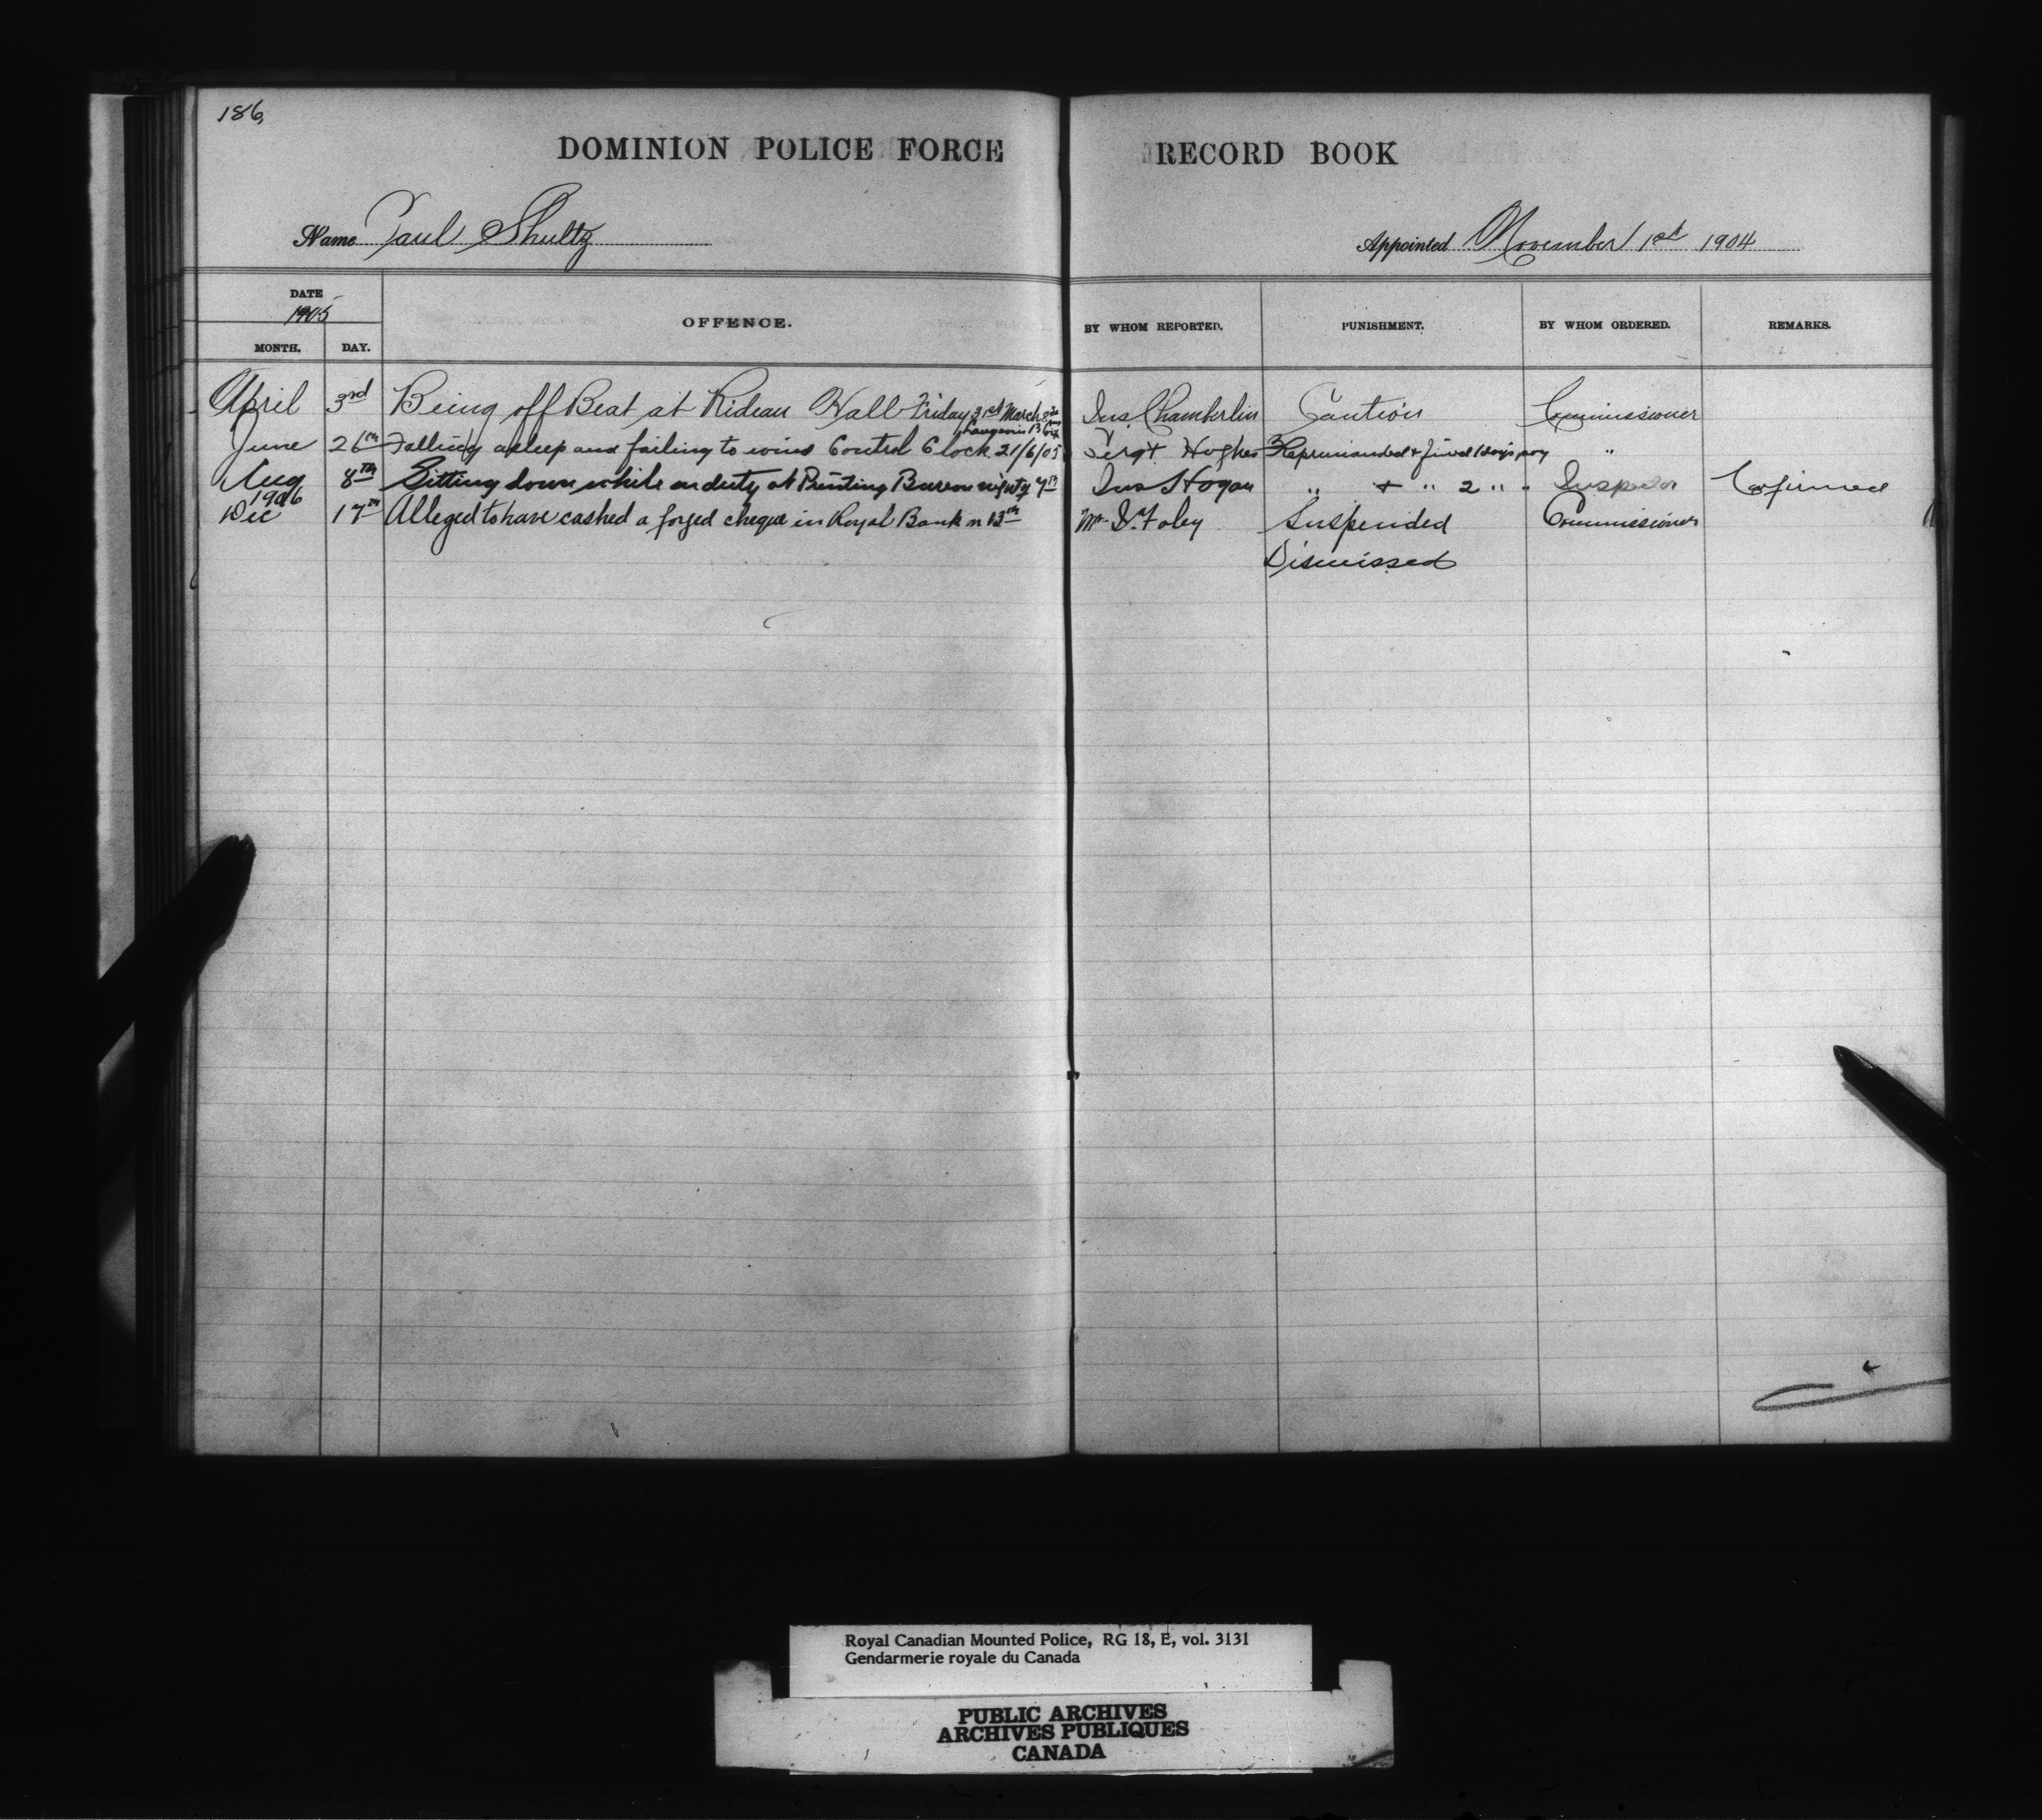 186,
DOMINION POLICE FORCE RECORD BOOK
Name Paul Shultz Appointed November 1st 1904
DATE
1905
MONTH. DAY. OFFENCE. BY WHOM REPORTED. PUNISHMENT. BY WHOM ORDERED. REMARKS.
April 3rd Being off Beat at Rideau Hall Friday 31st March Ins. Chamberlin Caution Commissioner
June 26th Falling asleep and failing to wind Control Clock 21/6/05 Sergt. Hughes Reprimanded & fined 1 day's pay "
Aug 8th Sitting down while on duty at Printing Bureau night 7th Ins Hogan " & " 2 " " Inspector Confirmed
1906
Dec 17th Alleged to have cashed a forged cheque in Royal Bank on 13th Mr D. Foley Suspended Commissioner
Dismissed
Royal Canadian Mounted Police, RG 18, E, vol. 3131
Gendarmerie royale du Canada
PUBLIC ARCHIVES
ARCHIVES PUBLIQUES
CANADA